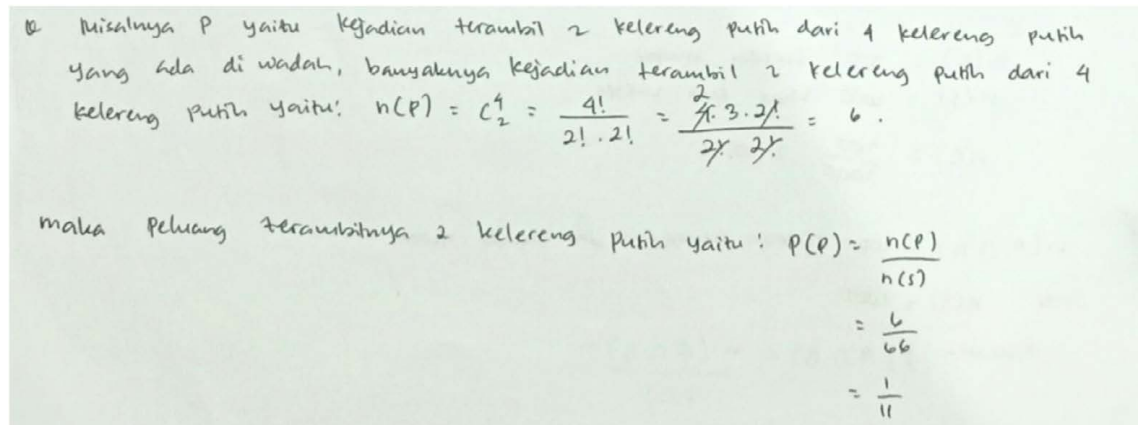 Misalnya P yaitu kejadian terambil 2 kelereng putih dari 4 kelereng putih
yang ada di wadah, banyaknya kejadian terambil 2 kelereng putih dari 4
kelereng putih yaitu: n(P) = C₂⁴ = 4! / 2! . 2! = 4². 3 . 2! / 2! 2! = 6 .
maka peluang terambilnya 2 kelereng putih yaitu : P(P) = n(P) / n(S)
= 6 / 66
= 1 / 11